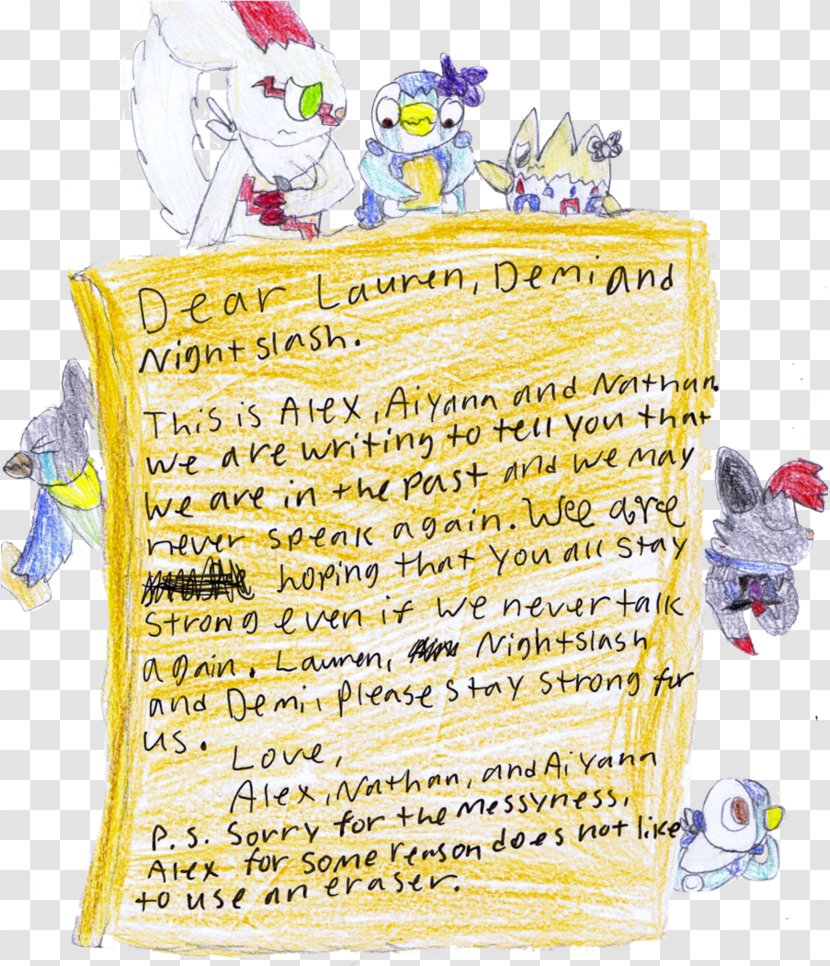 Dear Lauren, Demi and
Nightslash.
This is Alex, Aiyana and Nathan.
We are writing to tell you that
we are in the past and we may
never speak again. Wee are
hoping that you all stay
strong even if we never talk
again. Lauren, Nightslash
and Demi, please stay strong for
us.
Love,
Alex, Nathan, and Aiyana
P.S. Sorry for the messyness,
Alex for some reason does not like
to use an eraser.